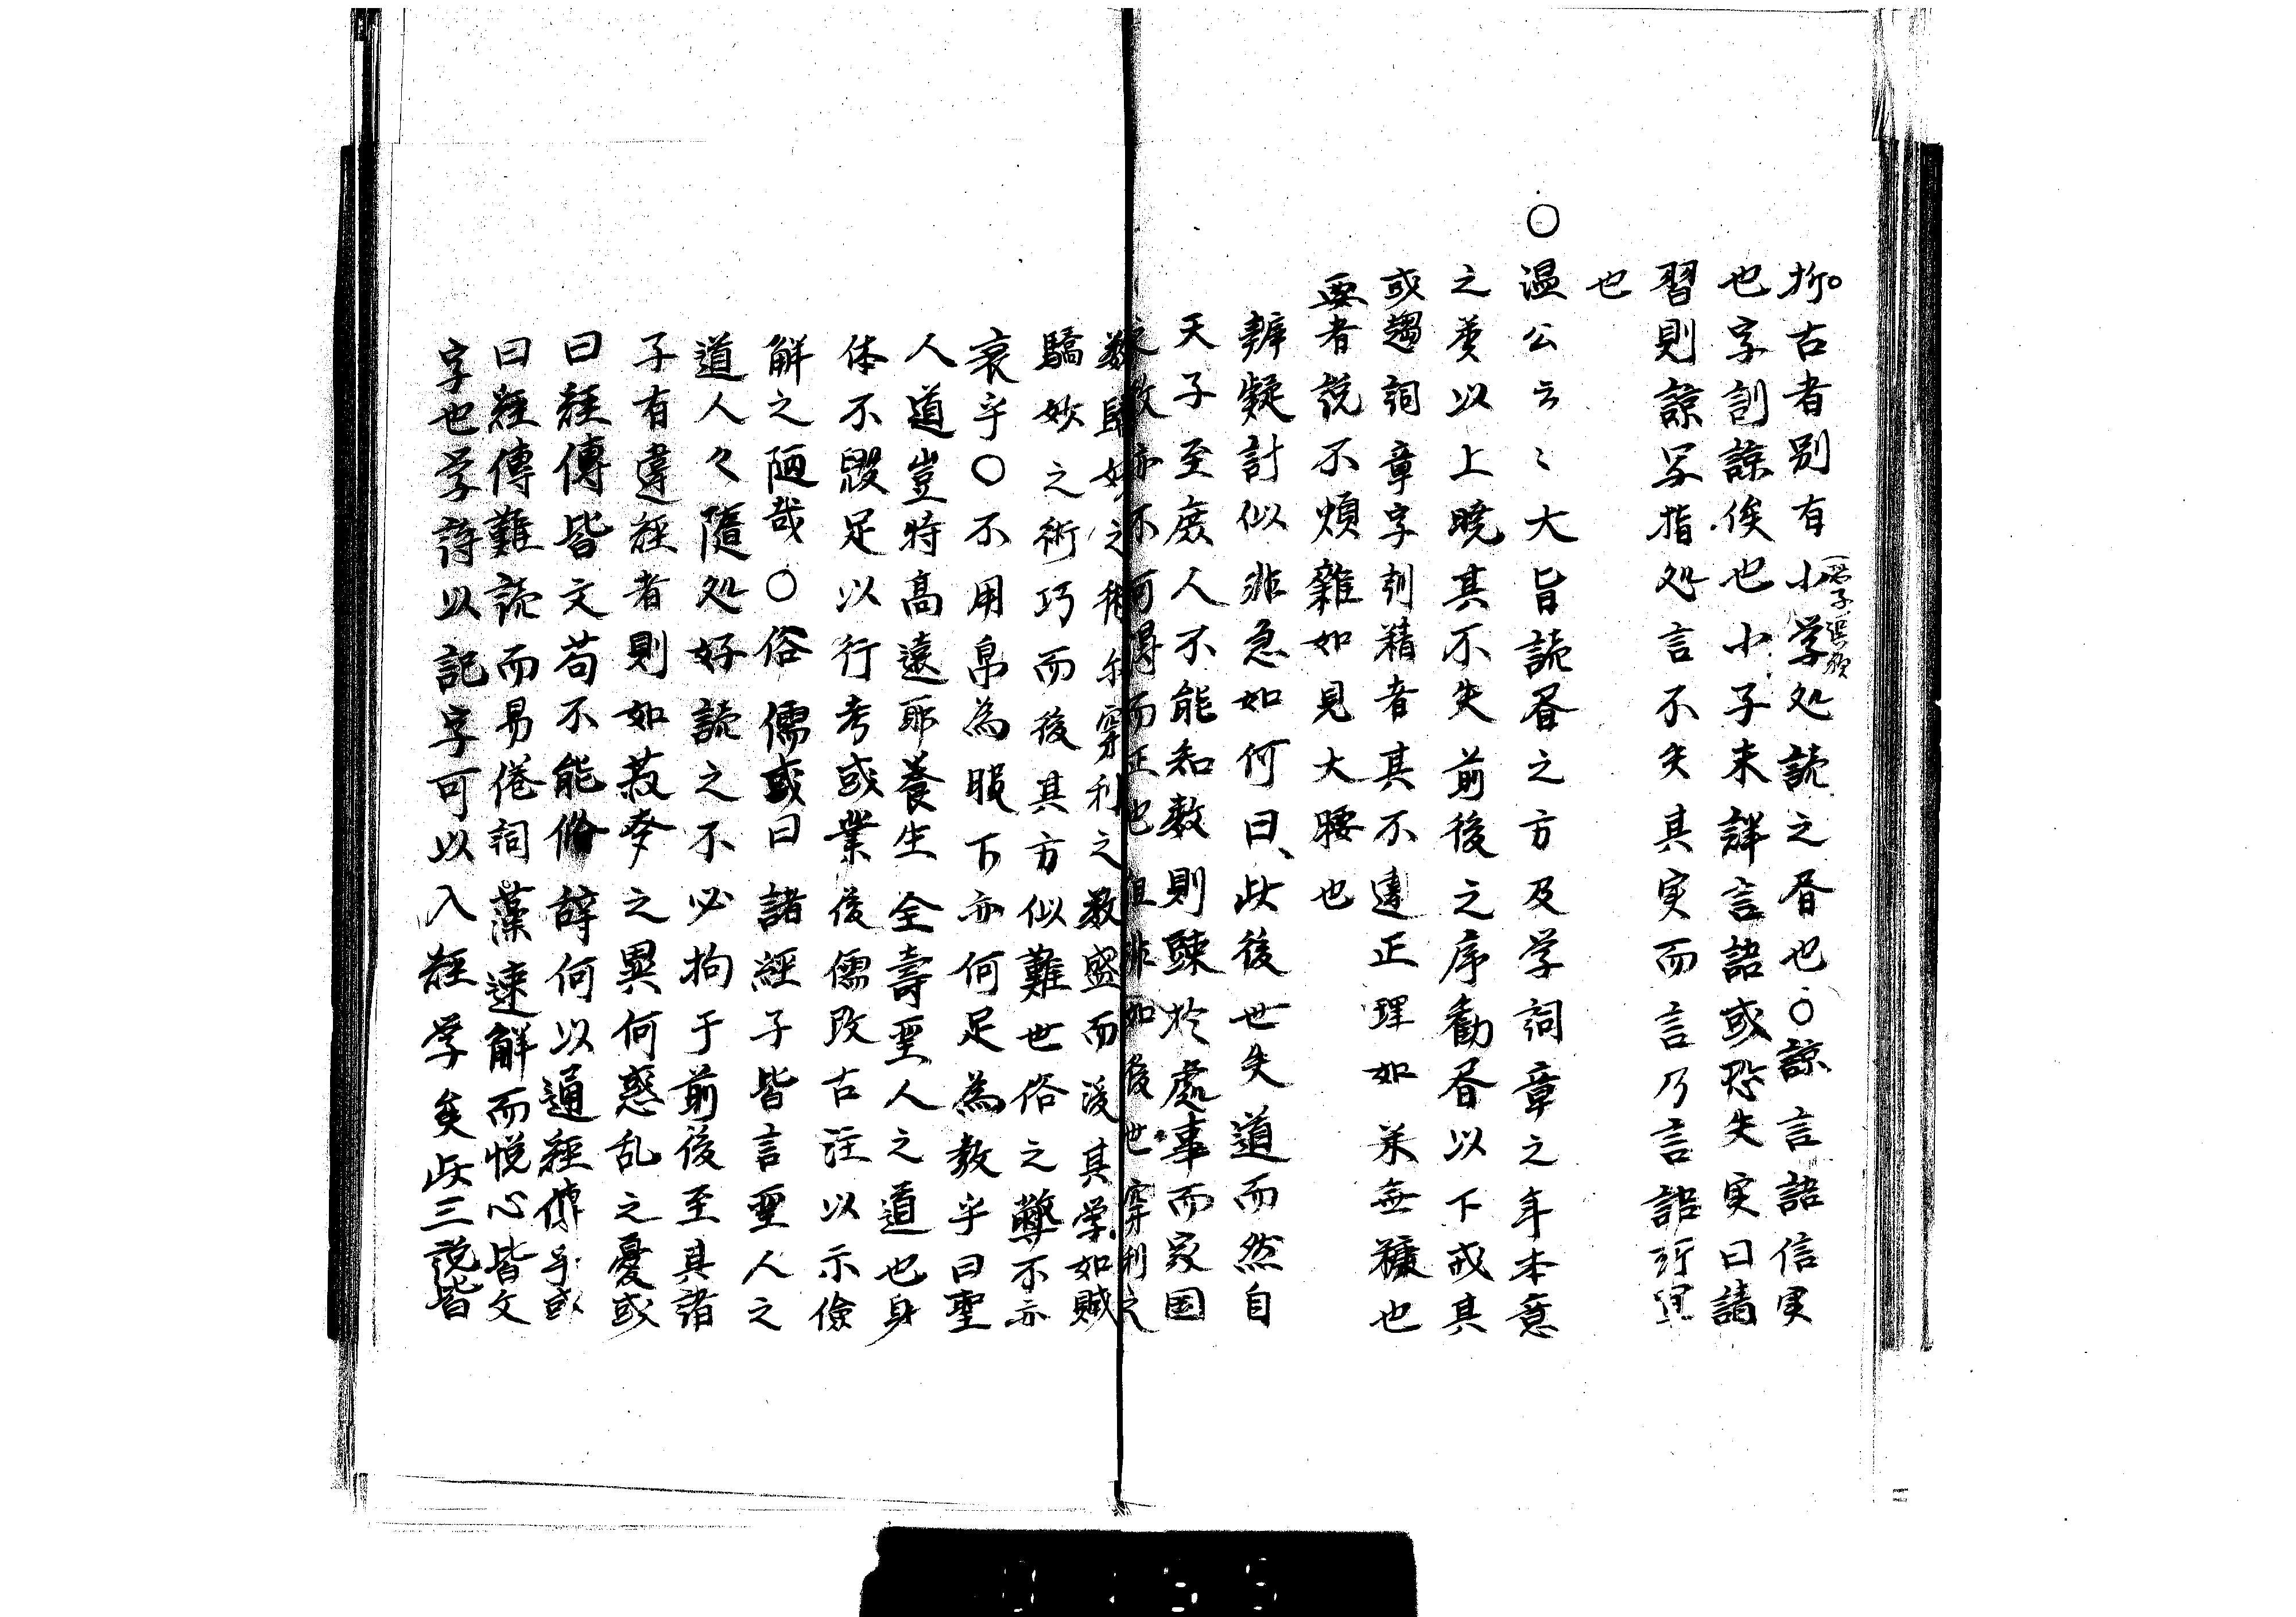 抑古者別有小学処読之昏也○諒言語信実
也字訓諒俟也小子未詳言語或恐失実曰請
習則諒写指処言不失其実而言乃言語
也
○温公云々大旨読昏之方及学詞章之年本意
之羙以上暁其不失前後之序勧昏以下或其
或趨詞章字刻精者其不違正理如米無糠也
要者説不煩雑如見大腰也
辨疑計似非急如何曰、此後世失道而然自
天子至庶人不能知数則踈於處事而家国
教亦不可得而正也且非如後世穿利之
数歸妙之術 穿利之教盛而後其学如賊
驕妙之術巧而後其方似難世俗之弊不亦
哀乎○不用帛為服下亦何足為教乎曰聖
人道豈特高遠耶養生全壽聖人之道也身
体不毀足以行考或業後儒改古注以示儉
解之陋哉○俗儒或曰諸經子皆言聖人之
道人々隨処好読之不必拘于前後至其諸
子有違経者則如菽麥之異何惑乱之憂或
曰経傳皆文苟不能脩辞何以通経傳乎或
曰経傳難読而易倦詞藻速解而悦心皆文
字也学詩以記字可以入経学矣此三説皆